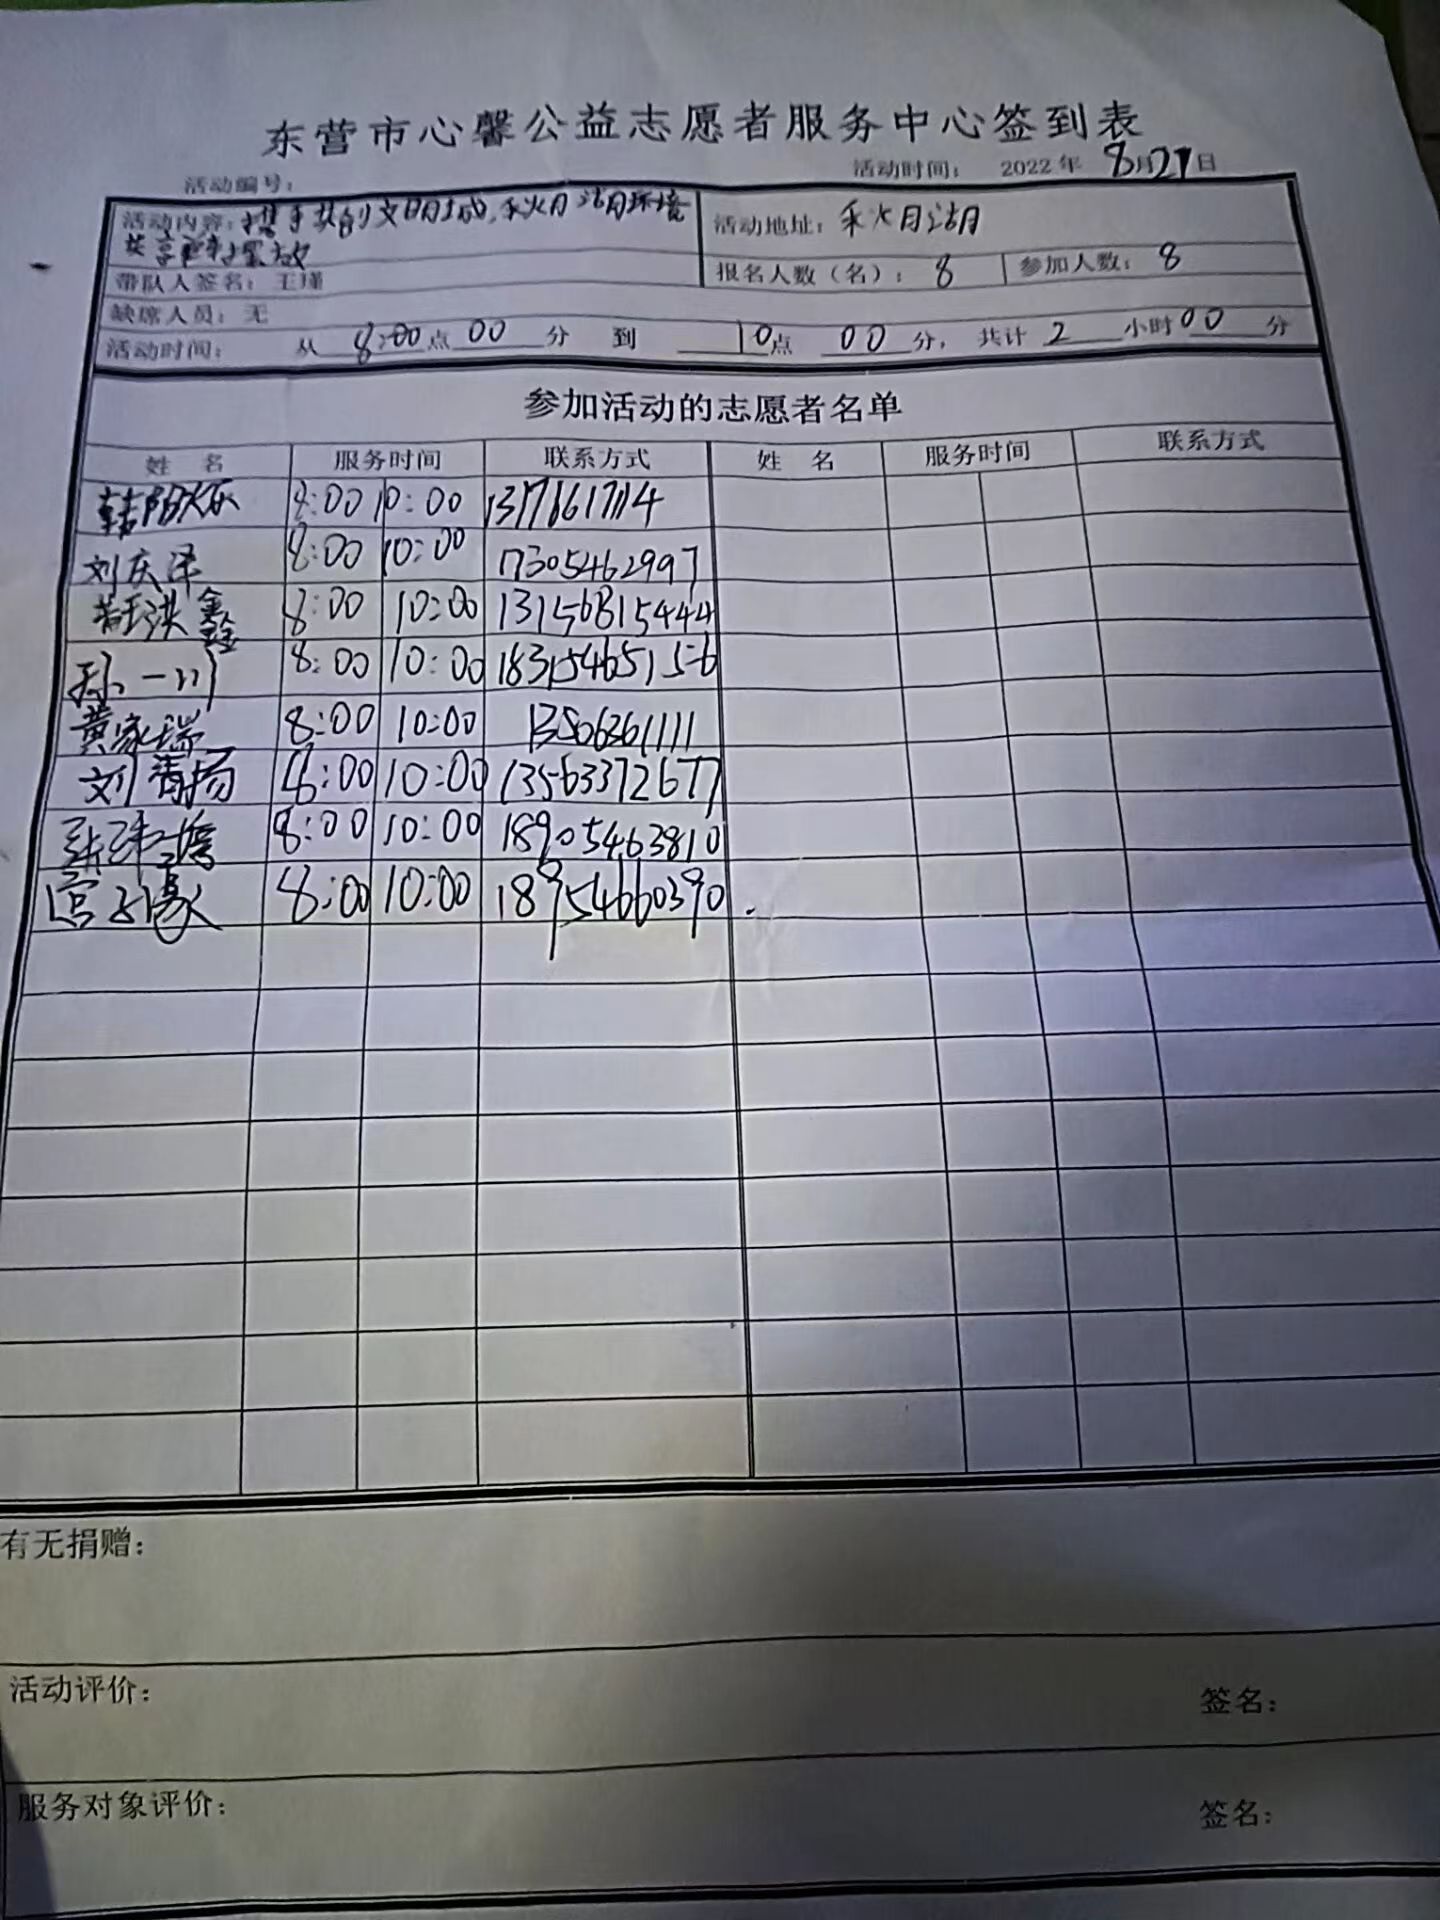 东营市心馨公益志愿者服务中心签到表
活动编号: 活动时间: 2022年 8月21日
活动内容:携手共创文明城,秋月湖环境
活动地址:秋月湖
共享
带队人签名:王瑾
报名人数(名): 8 参加人数: 8
缺席人员:无
活动时间: 从 8:00点 00 分 到 10点 00分, 共计 2 小时 00 分
参加活动的志愿者名单
姓 名 服务时间 联系方式 姓 名 服务时间 联系方式
8:00 10:00
刘庆泽 8:00 10:00 17305462997
洪鑫 8:00 10:00 13156815444
孙一川 8:00 10:00 18315465156
黄家瑞 8:00 10:00 13506361111
刘清扬 8:00 10:00 13563372677
8:00 10:00 18905463810
宫子豪 8:00 10:00 18954660390
有无捐赠:
活动评价: 签名:
服务对象评价: 签名: